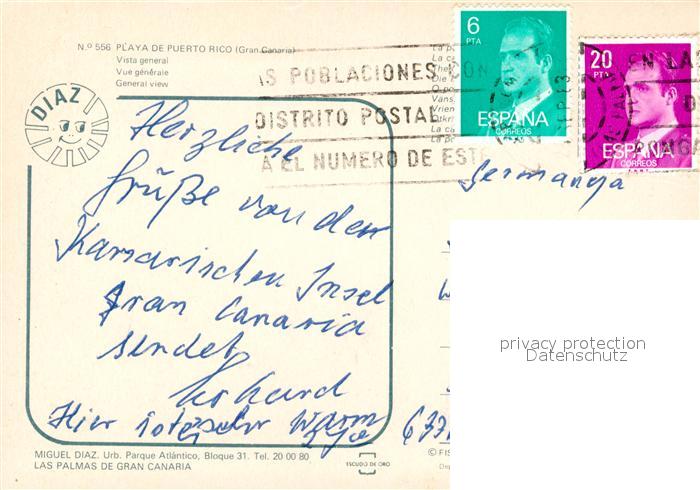 N.º 556 PLAYA DE PUERTO RICO (Gran Canaria)
Vista general
Vue générale
General view
DIAZ
AS POBLACIONES CON
DISTRITO POSTAL
A EL NUMERO DE ESTE
6
PTA
ESPAÑA
CORREOS
20
PTA
ESPAÑA
CORREOS
EN LA
Germanya
Herzliche
Grüße von der
Kanarischen Insel
Gran Canaria
sendet
Hier ist es sehr warm
633
privacy protection
Datenschutz
MIGUEL DIAZ. Urb. Parque Atlántico, Bloque 31. Tel. 20 00 80
LAS PALMAS DE GRAN CANARIA
ESCUDO DE ORO
© FIS